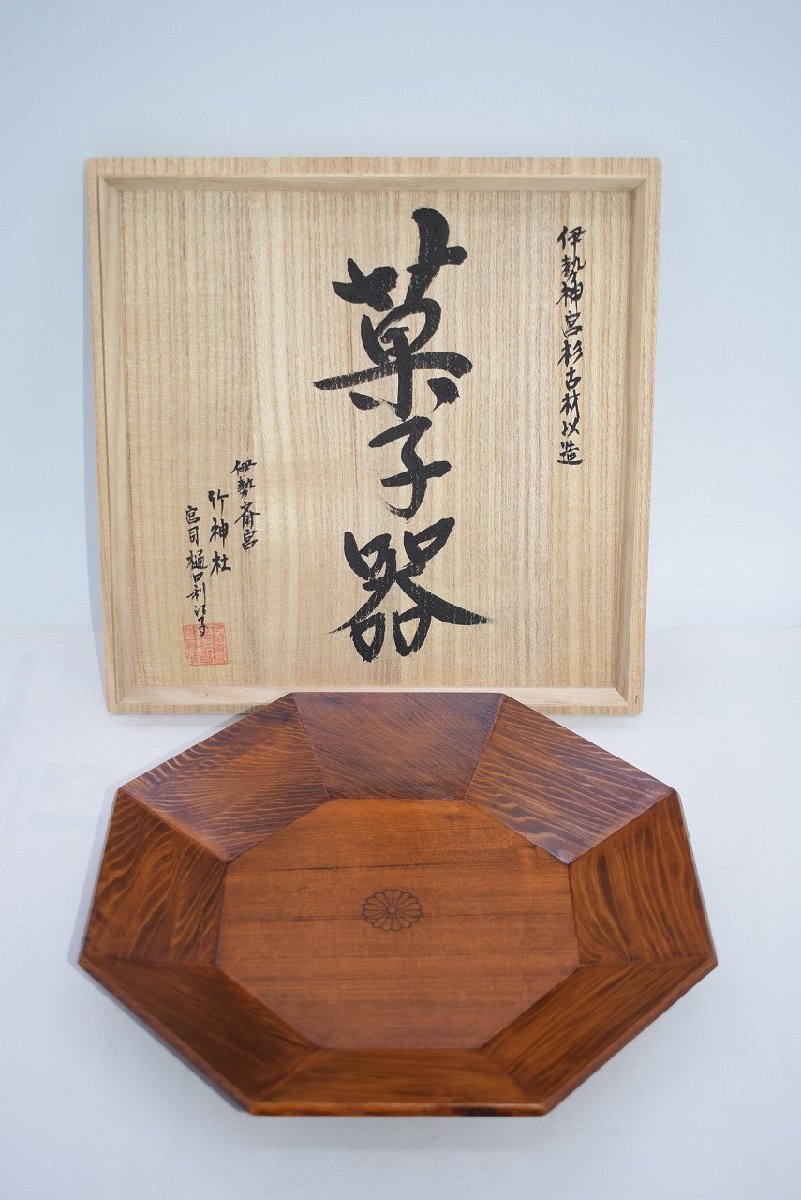 伊勢神宮杉古材以造
菓子器
伊勢斎宮
竹神社
宮司樋口利江子